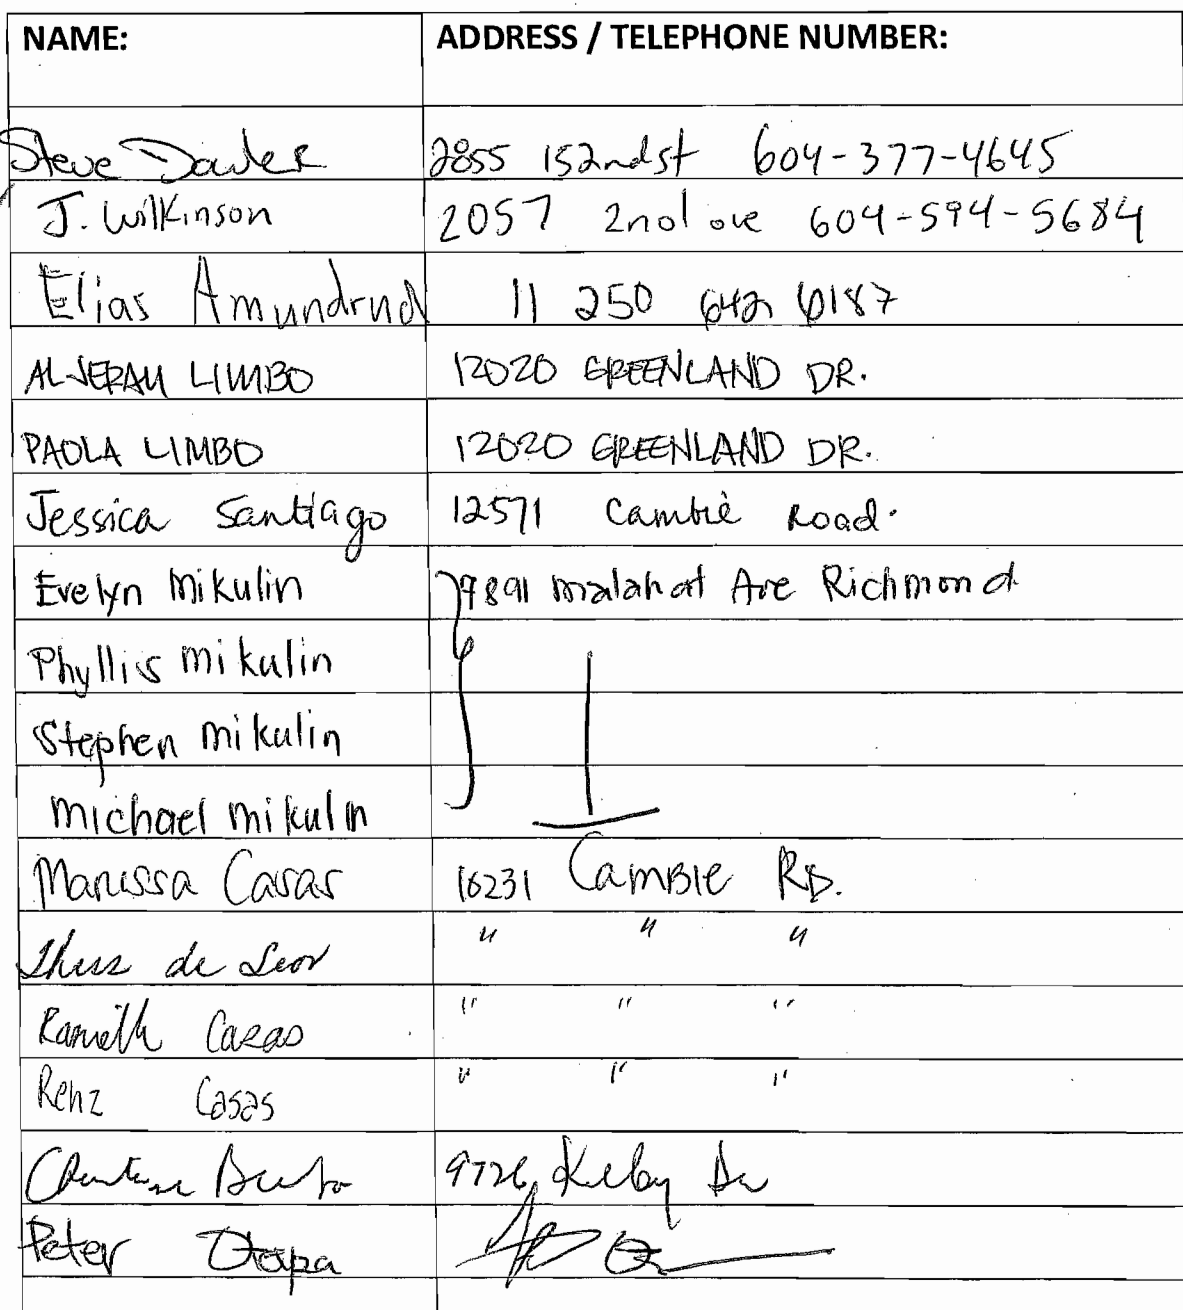 NAME: ADDRESS / TELEPHONE NUMBER:
Steve Dowler 2855 152nd st 604-377-4645
J. Wilkinson 2057 2nd ave 604-594-5684
Elias Amundrud 11 250 642 6187
ALJERAM LIMBO 12020 GREENLAND DR.
PAOLA LIMBO 12020 GREENLAND DR.
Jessica Santiago 12571 Cambie Road.
Evelyn Mikulin 9891 malahat Ave Richmond
Phyllis Mikulin
Stephen Mikulin
Michael Mikulin
Marissa Casas 16231 Cambie RD.
de Leon " " "
Casas " " "
Renz Casas " " "
9726 Dr
Peter